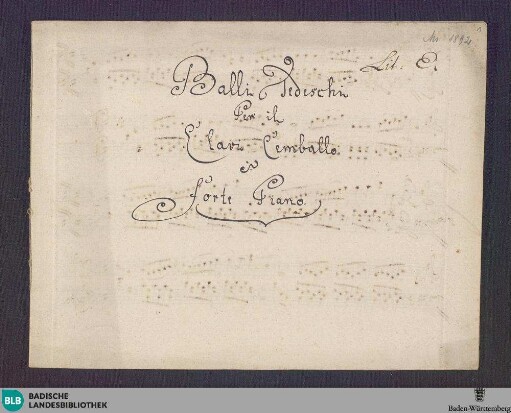 Lit. E.
Balli Tedeschi
Per il
Clavi Cemballo
o
forte Piano
BLB BADISCHE
LANDESBIBLIOTHEK
Baden-Württemberg